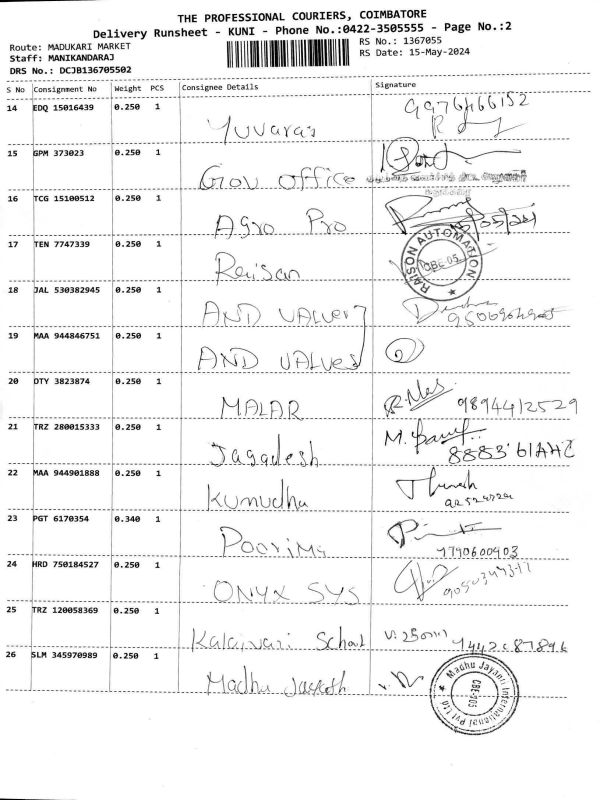 THE PROFESSIONAL COURIERS, COIMBATORE
Delivery Runsheet - KUNI - Phone No.:0422-3505555 - Page No.:2
Route: MADUKARI MARKET
Staff: MANIKANDARAJ
DRS No.: DCJB136705502
RS No.: 1367055
RS Date: 15-May-2024
S No Consignment No Weight PCS Consignee Details Signature
14 EDQ 15016439 0.250 1 Yuvaraj
15 GPM 373023 0.250 1 Gov office
16 TCG 15100512 0.250 1 Agro Pro
17 TEN 7747339 0.250 1 Raisan
RAISON AUTOMATION
CBE-05
18 JAL 530382945 0.250 1 AND VALUer
19 MAA 944846751 0.250 1 AND VALUes
20 DTY 3823874 0.250 1 MALAR
9894412529
21 TRZ 280015333 0.250 1 Jagadesh
22 MAA 944901888 0.250 1 Kumudha
23 PGT 6170354 0.340 1 Poorima
7790600903
24 HRD 750184527 0.250 1 ONYX SYS
25 TRZ 120058369 0.250 1 Kalaivari School
26 SLM 345970989 0.250 1 Madhu Jayesh
Madhu Jayanti International Pvt Ltd